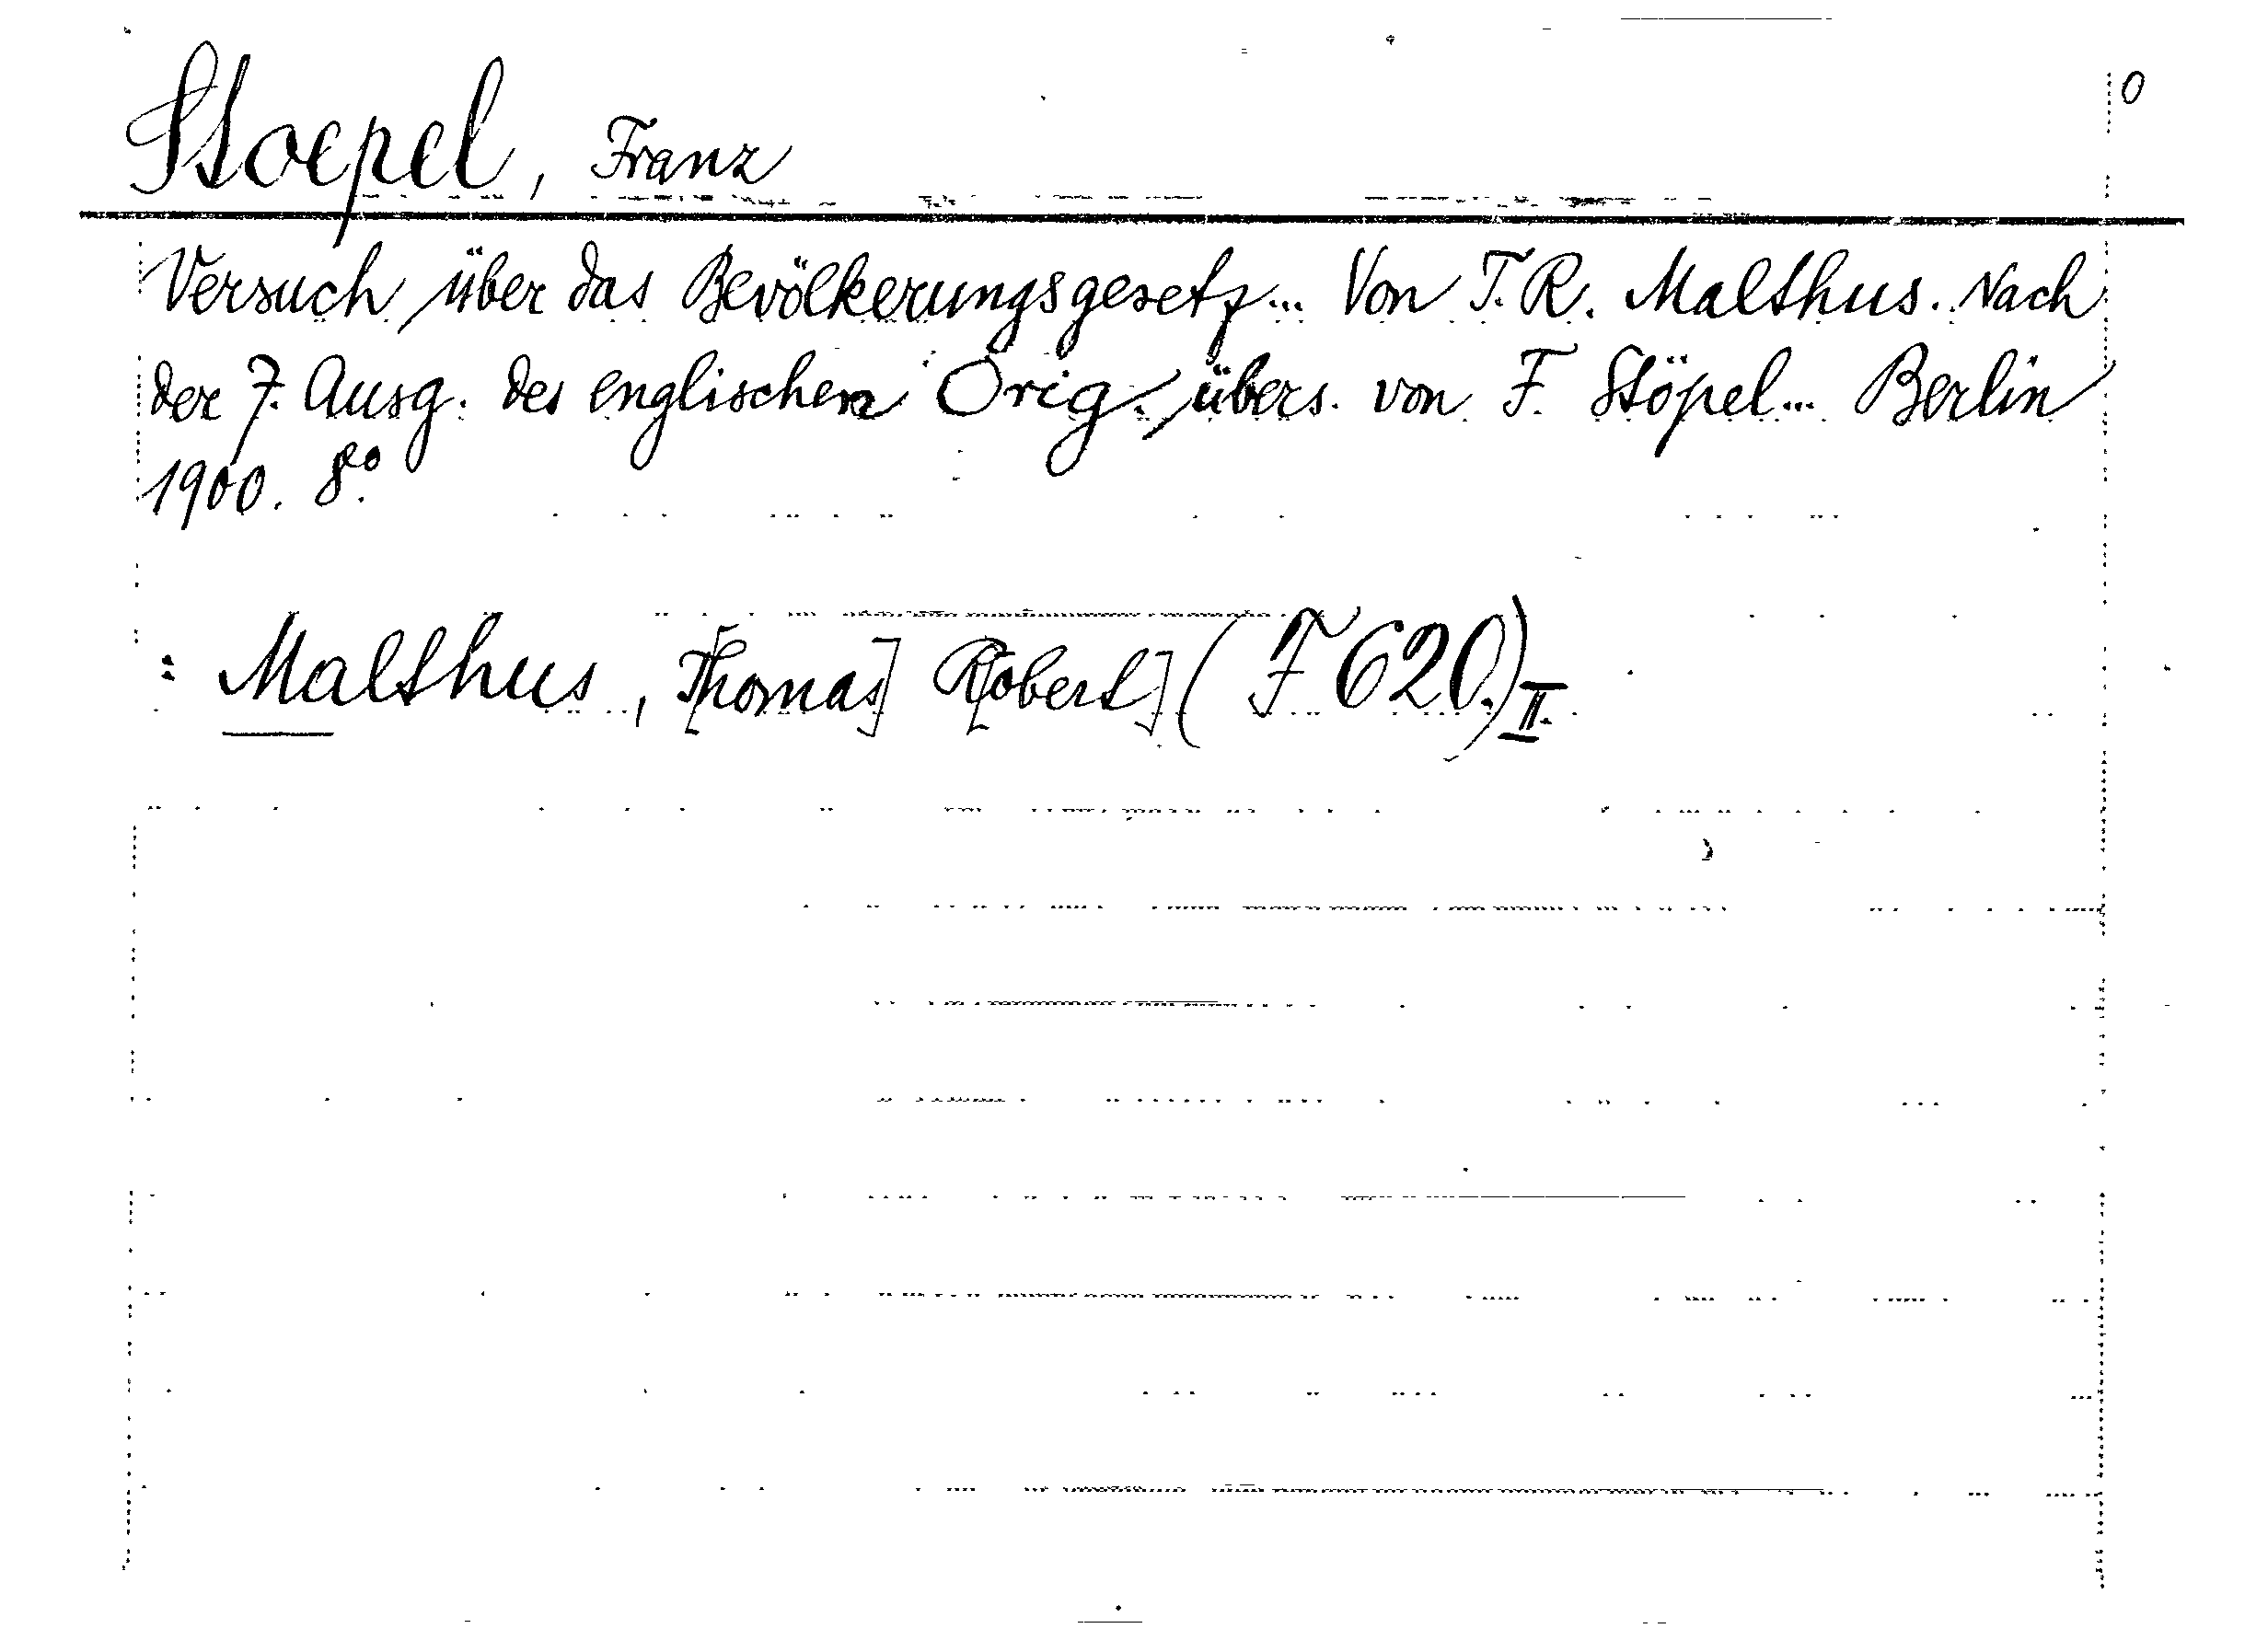 0
Stoepel, Franz
Versuch über das Bevölkerungsgesetz... Von T. R. Malthus. Nach
der 7. Ausg. des englischen Orig. übers. von F. Stöpel... Berlin
1900. 8º.
: Malthus, T[homas] R[obert] (F 620.) II.